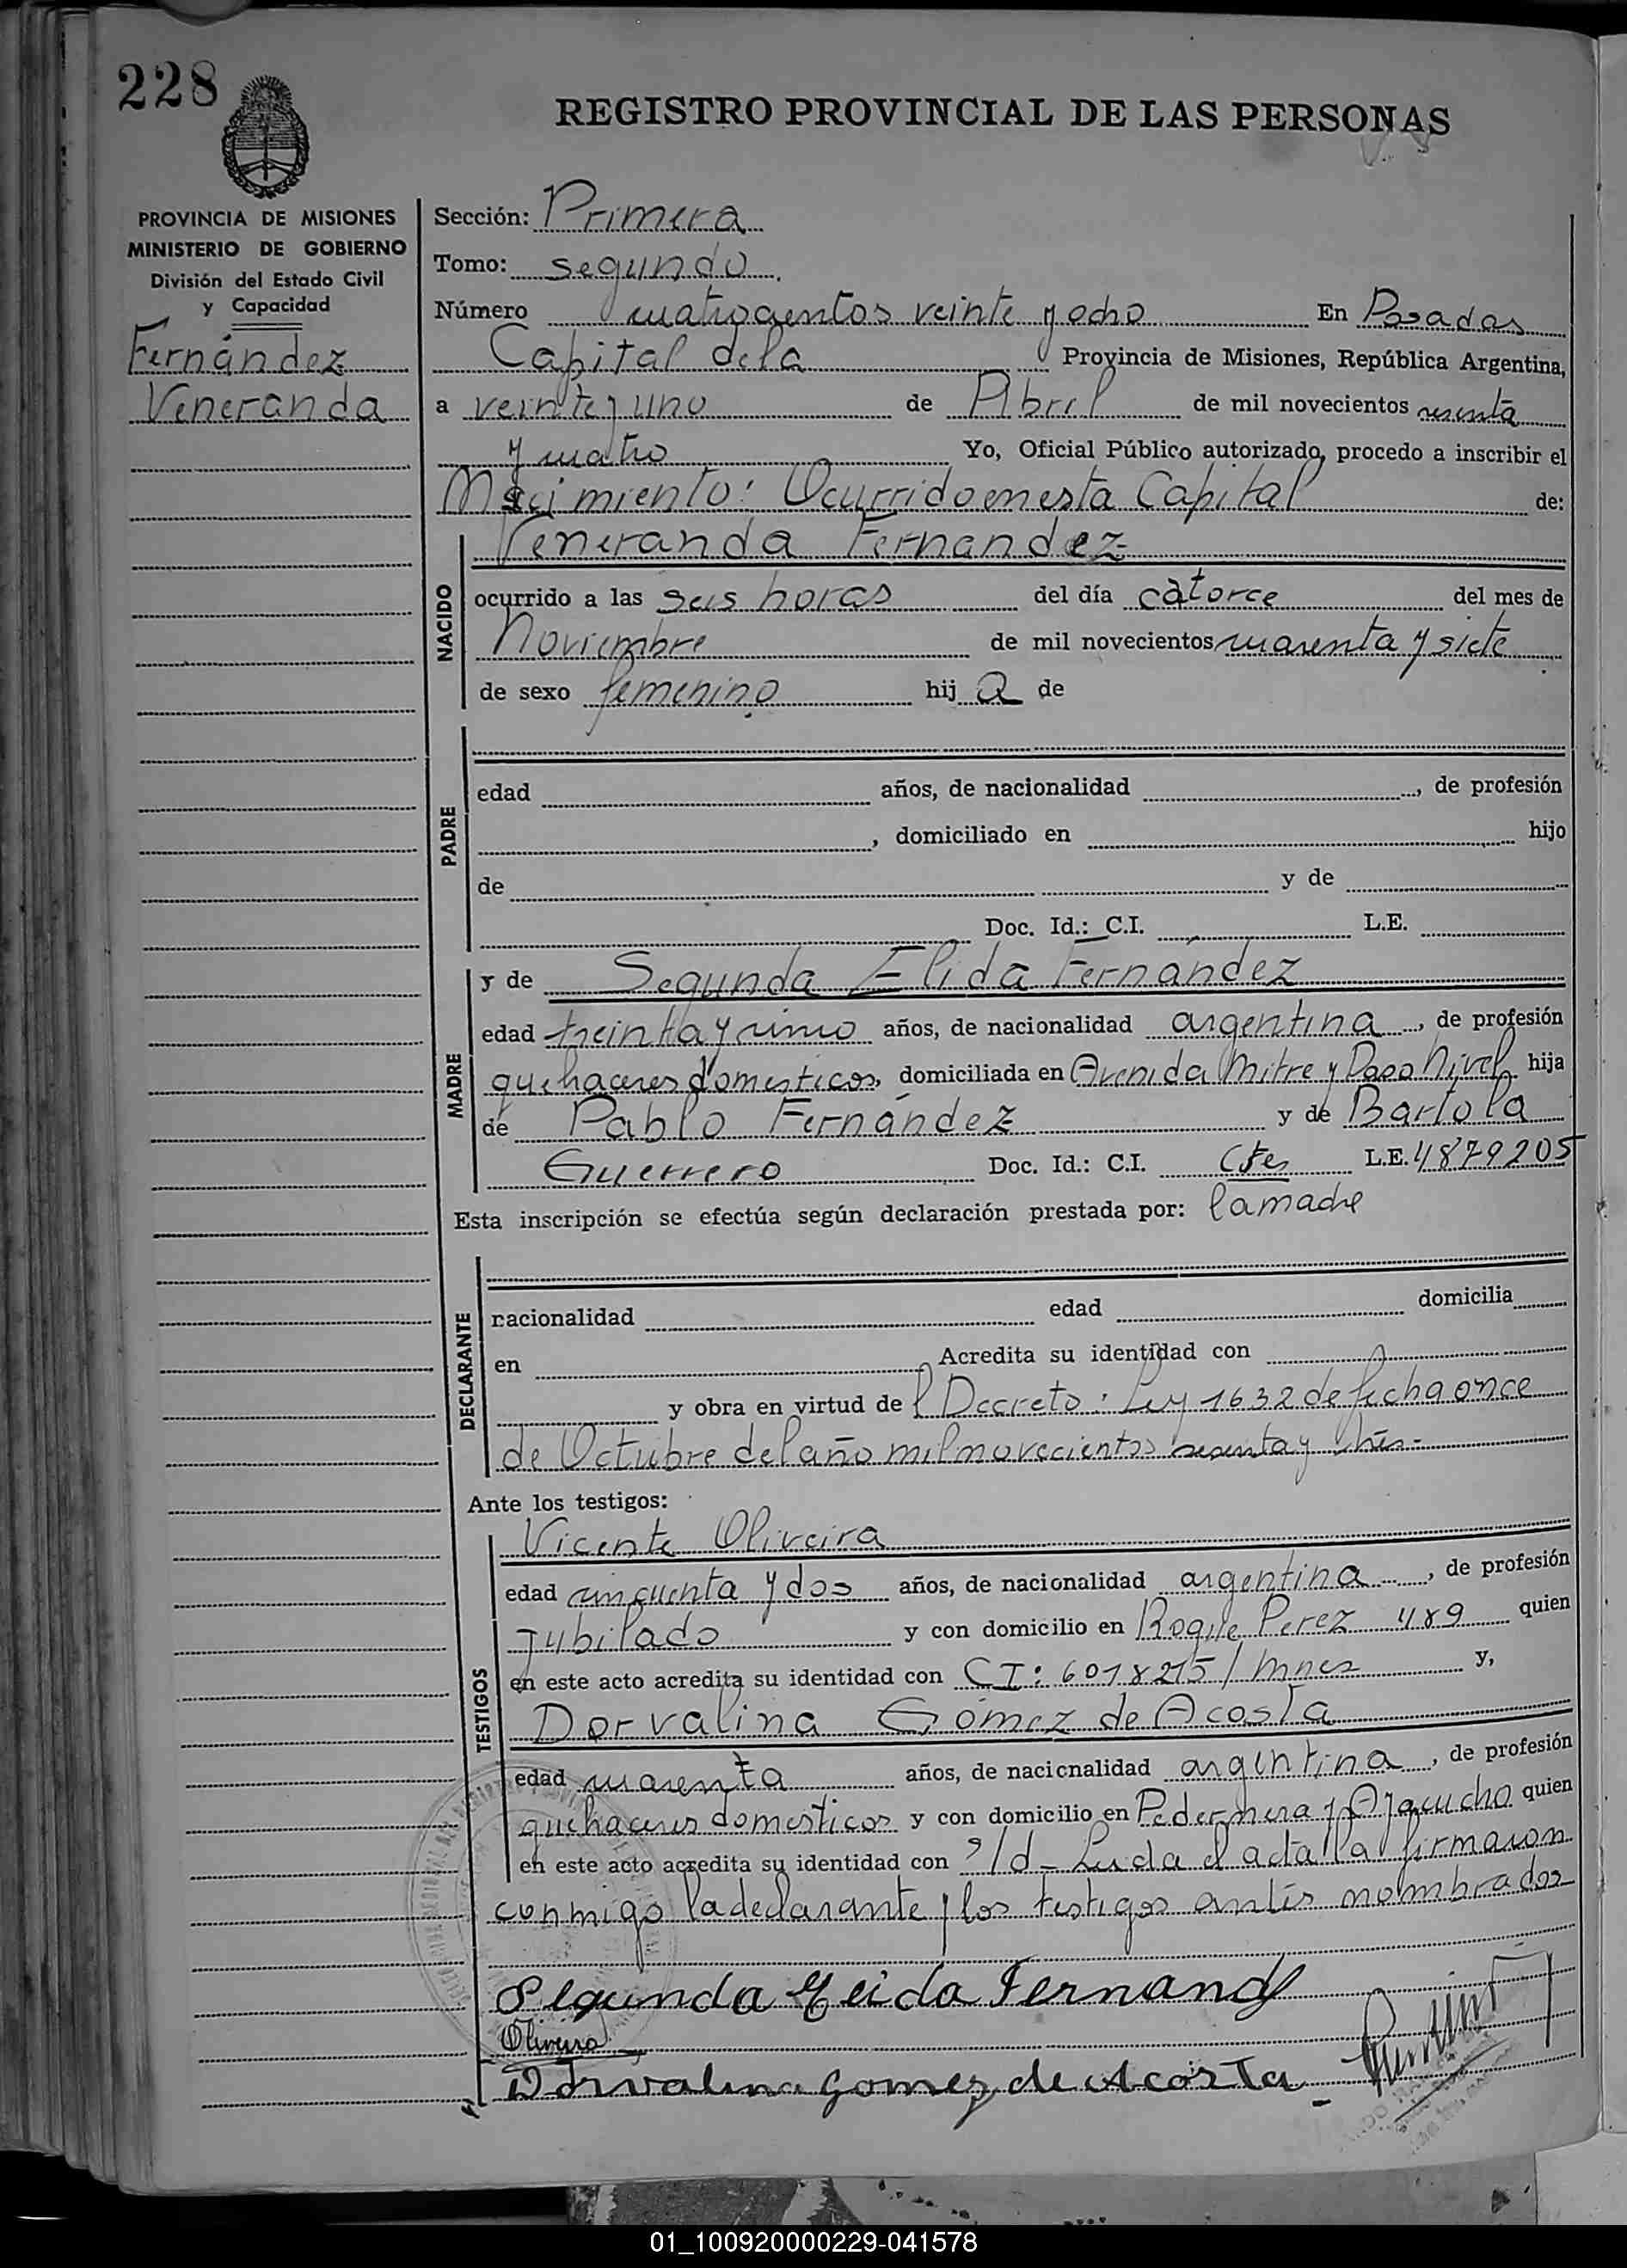 228
REGISTRO PROVINCIAL DE LAS PERSONAS
PROVINCIA DE MISIONES
MINISTERIO DE GOBIERNO
División del Estado Civil
y Capacidad
Fernández
Veneranda
Sección: Primera
Tomo: segundo.
Número cuatrocientos veinte y ocho En Posadas
Capital de la Provincia de Misiones, República Argentina,
a veinte y uno de Abril de mil novecientos sesenta
y cuatro Yo, Oficial Público autorizado, procedo a inscribir el
Nacimiento: Ocurrido en esta Capital de:
NACIDO
Veneranda Fernandez
ocurrido a las seis horas del día catorce del mes de
Noviembre de mil novecientos cuarenta y siete
de sexo femenino hij a de
PADRE
edad años, de nacionalidad , de profesión
, domiciliado en hijo
de y de
Doc. Id.: C.I. L.E.
MADRE
y de Segunda Elida Fernández
edad treinta y cinco años, de nacionalidad argentina, de profesión
quehaceres domesticos, domiciliada en Avenida Mitre y Paso Nivel hija
de Pablo Fernández y de Bartola
Guerrero Doc. Id.: C.I. Ctes L.E. 4879205
Esta inscripción se efectúa según declaración prestada por: la madre
DECLARANTE
nacionalidad edad domicilia
en Acredita su identidad con
y obra en virtud de l Decreto: Ley 1632 de fecha once
de Octubre del año mil novecientos sesenta y trés.-
Ante los testigos:
TESTIGOS
Vicente Oliveira
edad cincuenta y dos años, de nacionalidad argentina, de profesión
jubilado y con domicilio en Roque Perez 489 quien
en este acto acredita su identidad con CI: 6018215/Mnes y,
Dorvalina Gómez de Acosta
edad cuarenta años, de nacionalidad argentina, de profesión
quehaceres domesticos y con domicilio en Pedernera y Ayacucho quien
en este acto acredita su identidad con s/d - Leida el acta la firmaron
conmigo la declarante y los testigos antes nombrados
Segunda Eleida Fernand
Oliveira
Dorvalina Gomez de Acosta
01_100920000229-041578